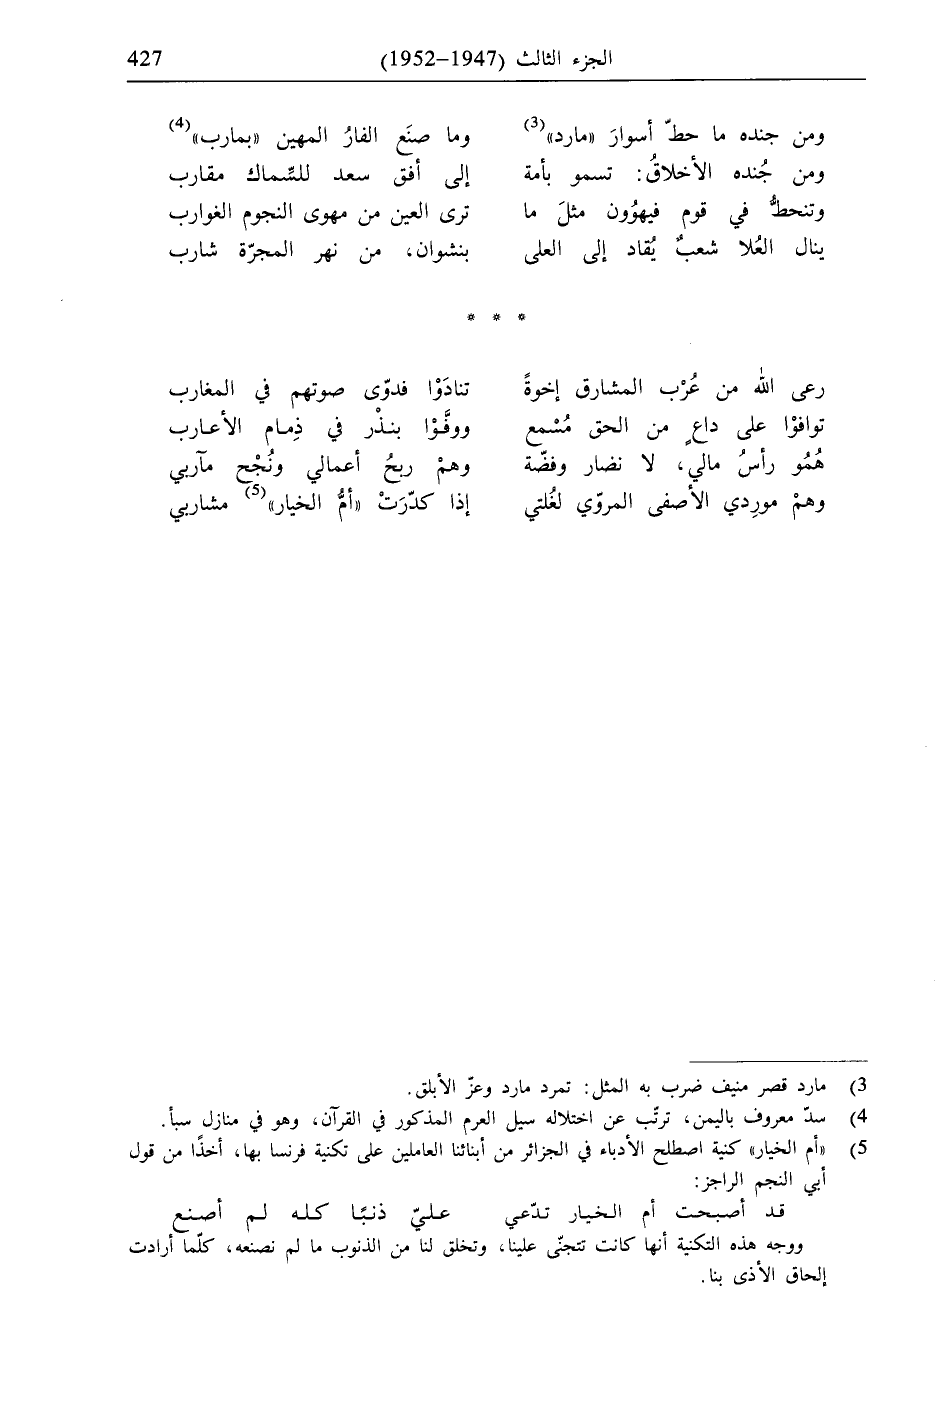 الجزء الثالث (1947–1952) 427
ومن جنده ما حطّ أسوارَ «مارد»(3) وما صنَع الفارُ المهين «بمارب»(4)
ومن جُنده الأخلاقُ: تسمو بأمة إلى أفق سعد للسِّماك مقارب
وتنحطُّ في قوم فيهوُون مثلَ ما ترى العين من مهوى النجوم الغوارب
ينال العُلا شعبٌ يُقاد إلى العلى بنشوان، من نهر المجرّة شارب
* * *
رعى الله من عُرْب المشارق إخوةً تنادَوْا فدوّى صوتهم في المغارب
توافوْا على داعٍ من الحق مُسْمع ووفَّوْا بنذْر في ذِمام الأعارب
هُمُو رأسُ مالي، لا نضار وفضّة وهمْ ربحُ أعمالي ونُجْح مآربي
وهمْ مورِدي الأصفى المروّي لغُلتي إذا كدّرَتْ «أمُّ الخيار»(5) مشاربي
3) مارد قصر منيف ضرب به المثل: تمرد مارد وعزّ الأبلق.
4) سدّ معروف باليمن، ترتّب عن اختلاله سيل العرم المذكور في القرآن، وهو في منازل سبأ.
5) «أم الخيار» كنية اصطلح الأدباء في الجزائر من أبنائنا العاملين على تكنية فرنسا بها، أخذًا من قول
أبي النجم الراجز:
قد أصبحت أم الخيار تدّعي عليّ ذنبًا كله لم أصنع
ووجه هذه التكنية أنها كانت تتجنّى علينا، وتخلق لنا من الذنوب ما لم نصنعه، كلّما أرادت
إلحاق الأذى بنا.